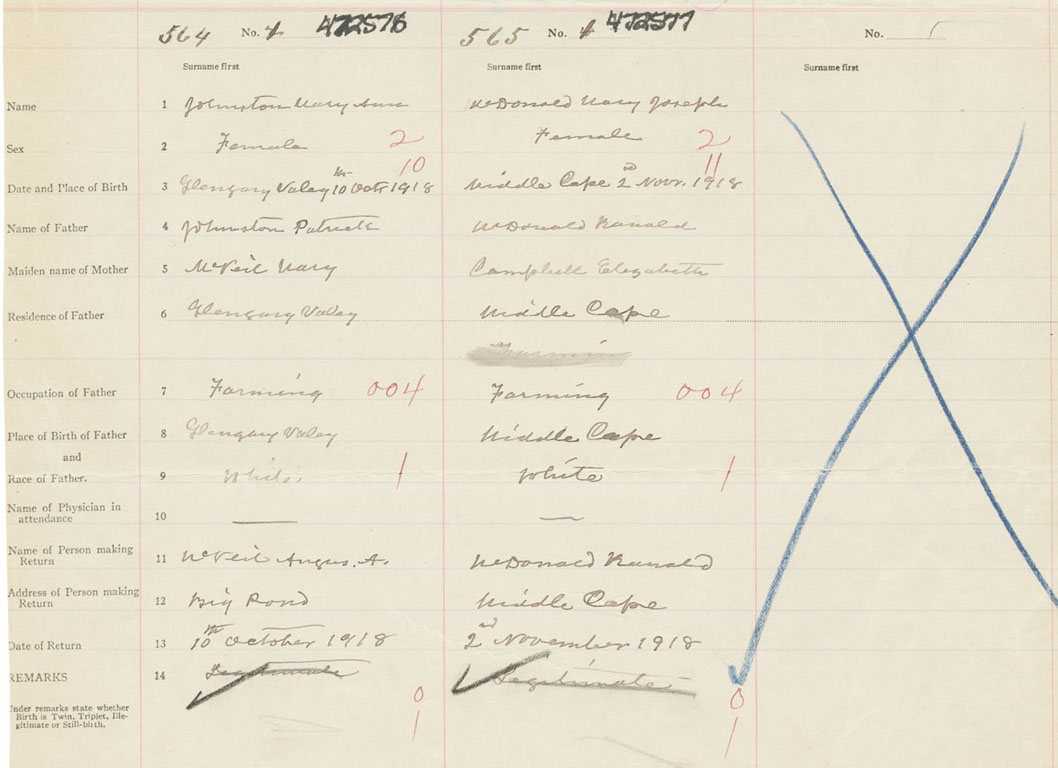 564 No. 4 472576 565 No. 4 472577 No.
Surname first Surname first Surname first
Name 1 Johnston Mary Ann McDonald Mary Joseph
Sex 2 Female 2 Female 2
10 11
Date and Place of Birth 3 Glengary Valey 10th Octr 1918 Middle Cape 2nd Novr. 1918
Name of Father 4 Johnston Patrick McDonald Ranald
Maiden name of Mother 5 McNeil Mary Campbell Elizabeth
Residence of Father 6 Glengary Valey Middle Cape
Farming
Occupation of Father 7 Farming 004 Farming 004
Place of Birth of Father 8 Glengary Valey Middle Cape
and
Race of Father. 9 White 1 White 1
Name of Physician in
attendance 10 — —
Name of Person making
Return 11 McNeil Angus. A. McDonald Ranald
Address of Person making
Return 12 Big Pond Middle Cape
Date of Return 13 10th October 1918 2nd November 1918
REMARKS 14 Legitimate Legitimate
Under remarks state whether 0 0
Birth is Twin, Triplet, Ille-
gitimate or Still-birth. 1 1